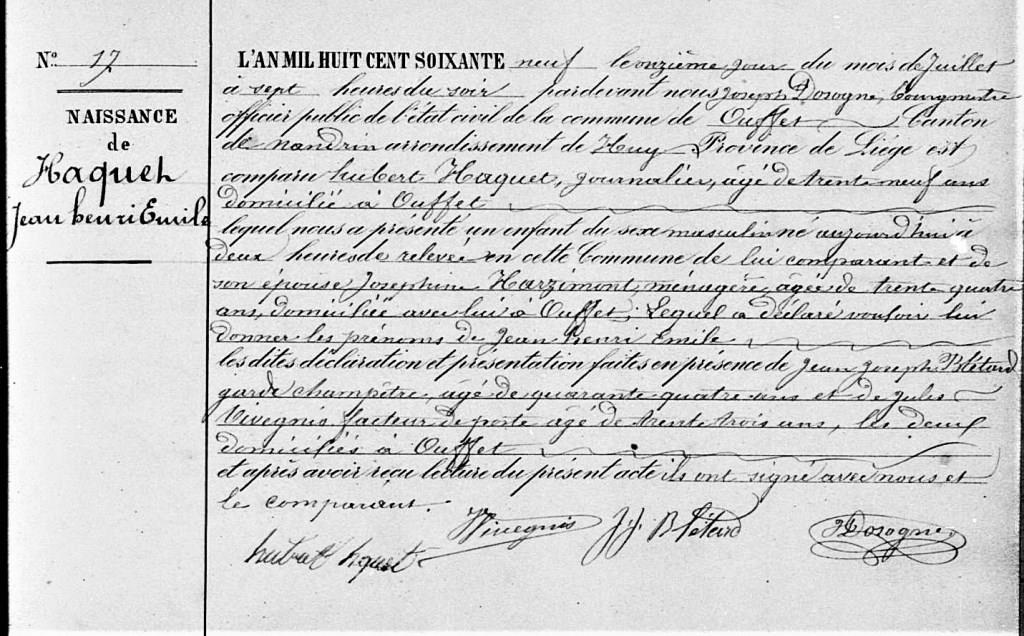 N.º 17
NAISSANCE
de
Haquet
Jean henri Emile
L'AN MIL HUIT CENT SOIXANTE neuf le onzième jour du mois de Juillet
à sept heures du soir pardevant nous Joseph Dosogne, bourgmestre
officier public de l'état civil de la commune de Ouffet Canton
de nandrin arrondissement de Huy Province de Liége est
comparu hubert Haquet, journalier, âgé de trent neuf ans
domicilié à Ouffet
lequel nous a présenté un enfant du sexe masculin né aujourd'hui à
deux heures de relevée en cette Commune de lui comparant et de
son épouse Josephine Harzimont, ménagère, âgée de trente quatre
ans, domiciliée avec lui à Ouffet, Lequel a déclaré vouloir lui
donner les prénoms de Jean henri Emile
les dites déclaration et présentation faites en présence de Jean Joseph Blétard
garde champêtre, âgé de quarante quatre ans et de jules
Vivegnis facteur de poste âgé de trente trois ans, les deux
domiciliés à Ouffet
et après avoir reçu lecture du présent acte ils ont signé avec nous et
le comparant.
hubert haquet Vivegnis J. J. Blétard J Dosogne